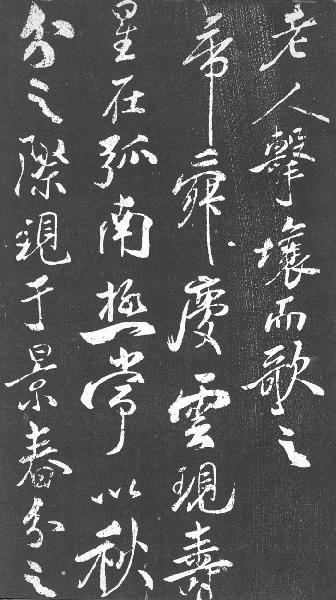 老人擊壤而歌之
帝舜慶雲現壽
星在弧南極常以秋
分之際現于景春分之